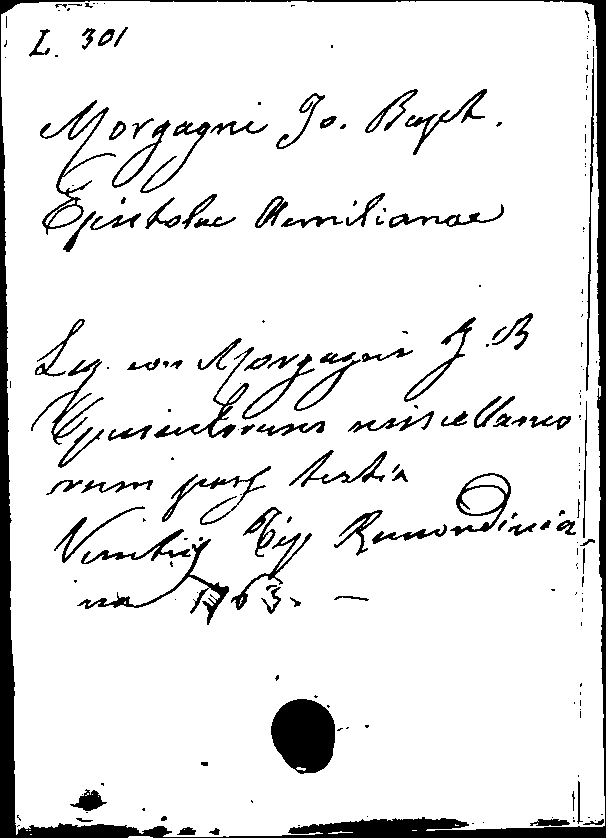 L. 301
Morgagni Jo. Bapt.
Epistolae Aemilianae
Leg. con Morgagni J. B
Opusculorum miscellaneo
rum pars tertia
Venetiis Tip Remondinia
na 1763. —